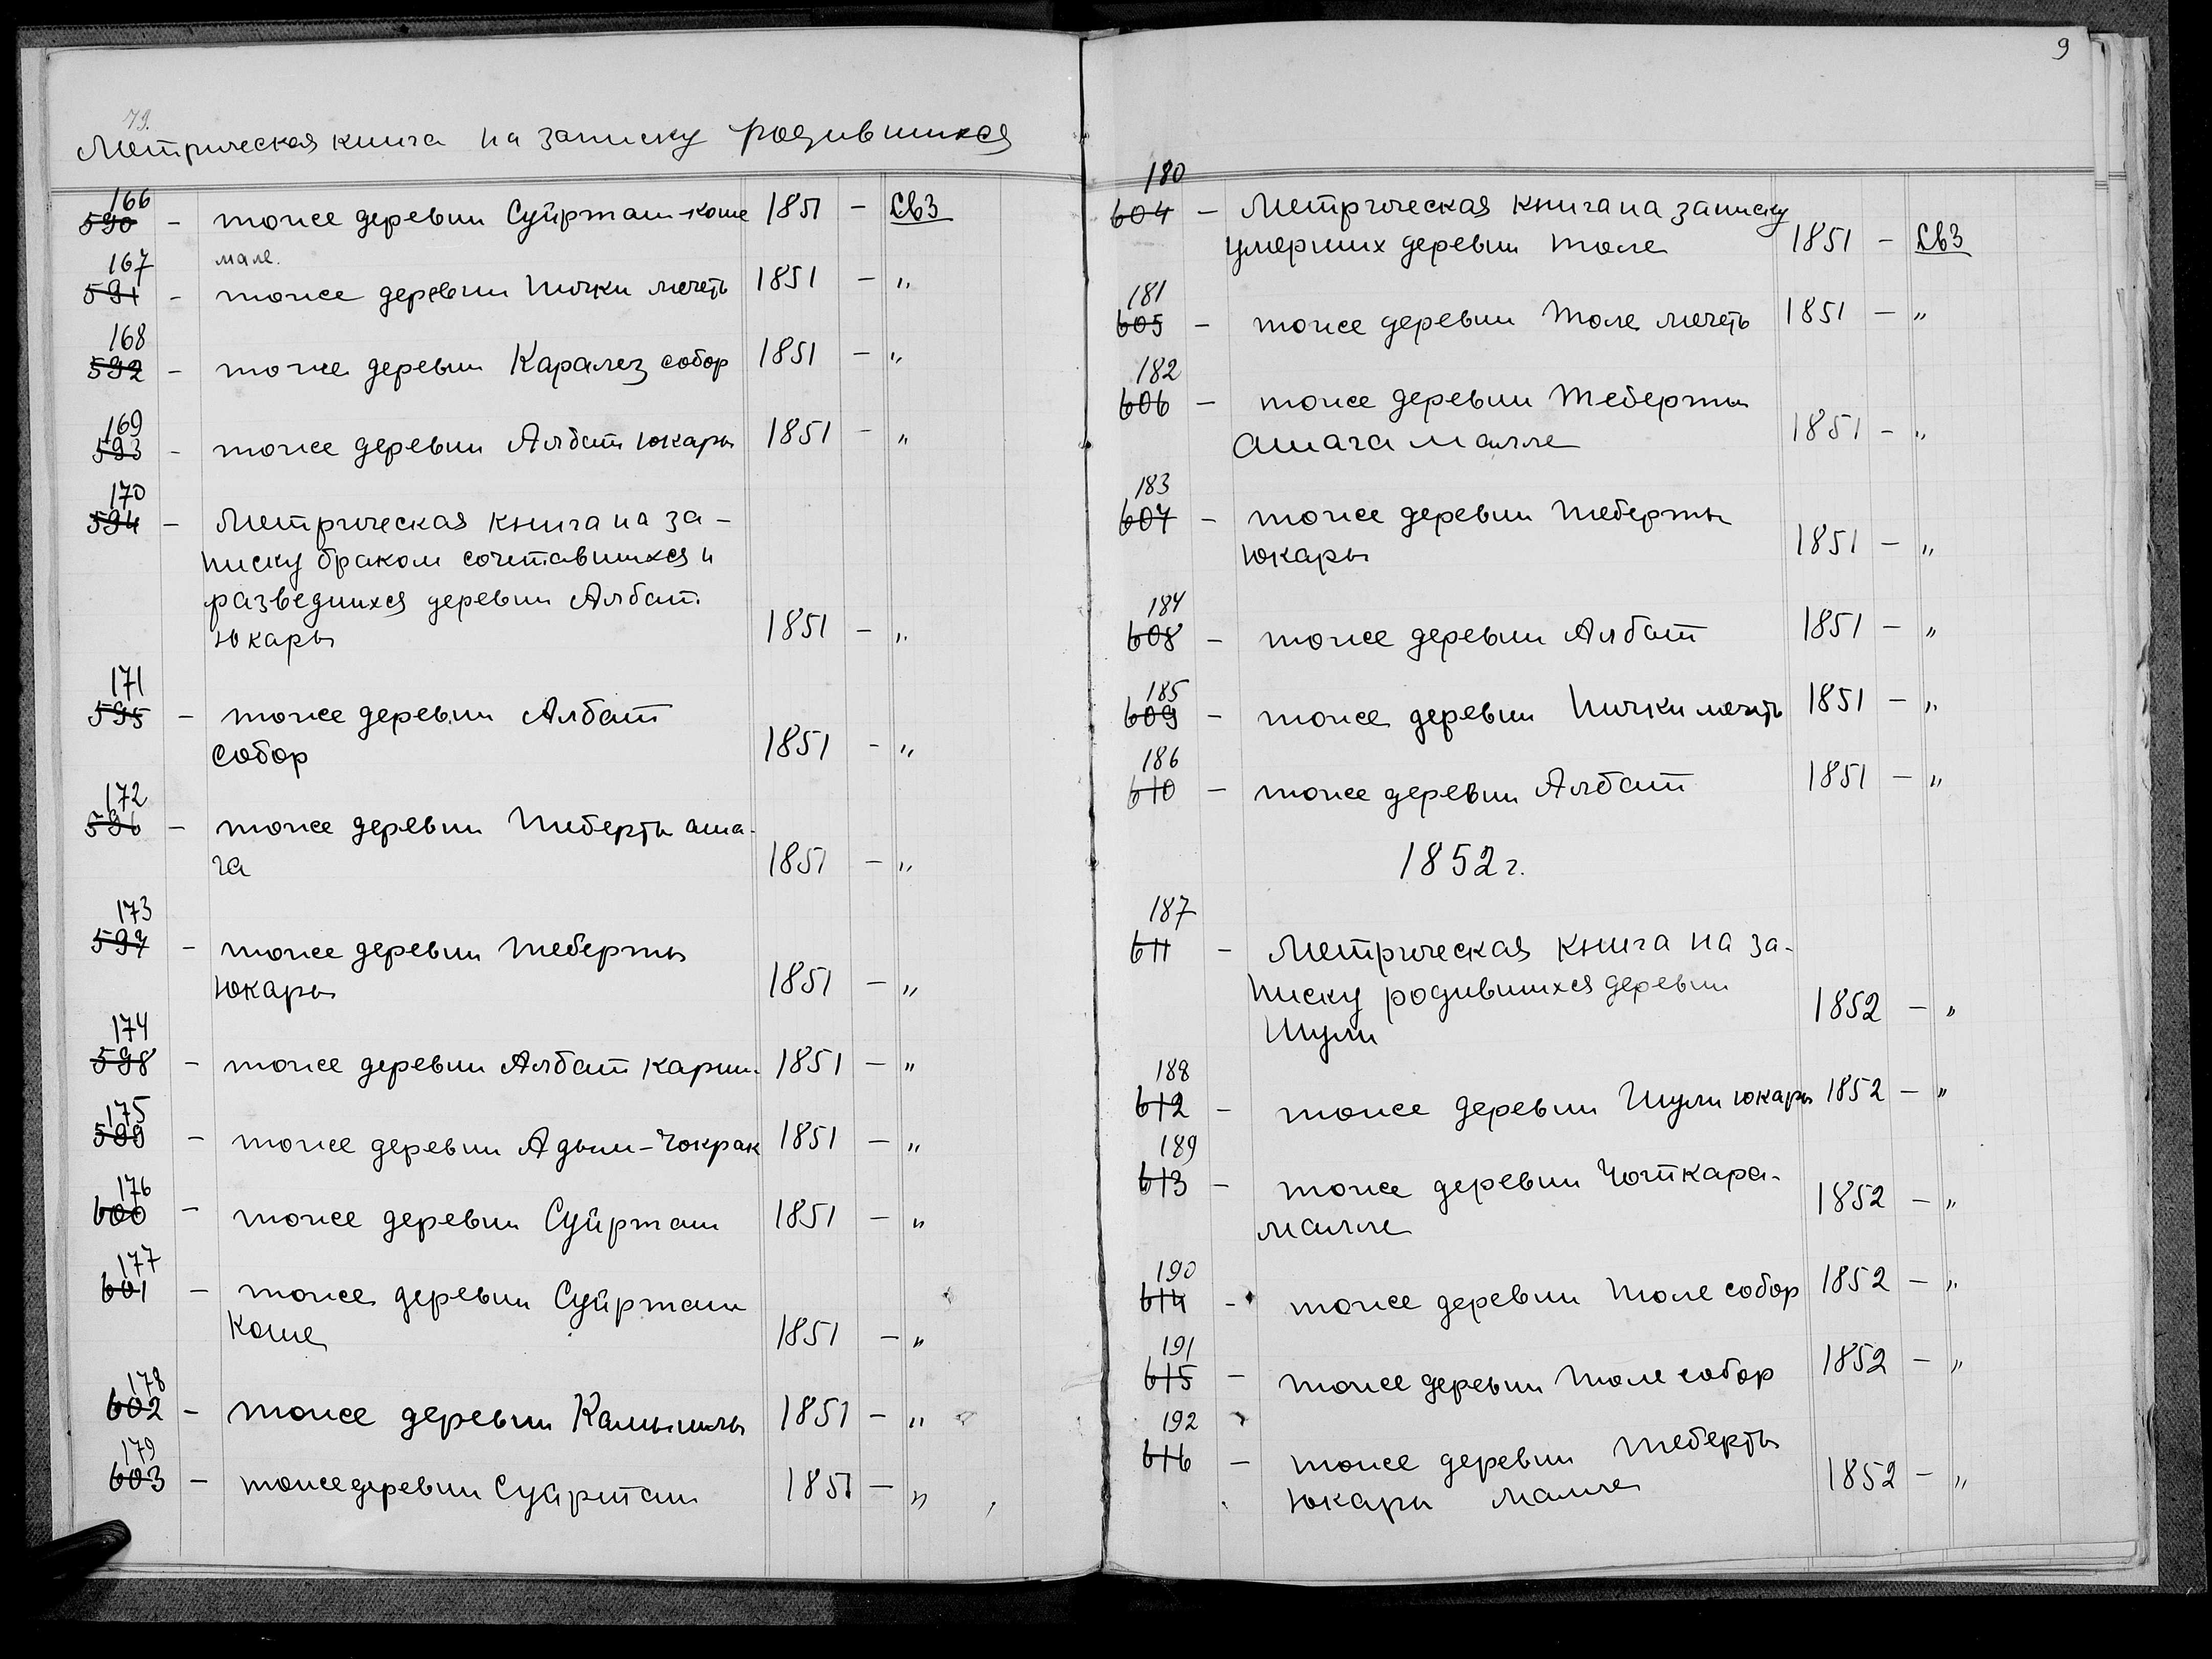 79.
Метрическая книга на записку родившихся
166
590 - тоже деревни Суйрташ-коше 1851 - Св3
мале.
167
591 - тоже деревни Пички мечеть 1851 - "
168
592 - тоже деревни Каралез собор 1851 - "
169
593 - тоже деревни Албат юкары 1851 - "
170
594 - Метрическая книга на за-
писку браком сочетавшихся и
разведшихся деревни Албат
юкары 1851 - "
171
595 - тоже деревни Албат
собор 1851 - "
172
596 - тоже деревни Теберты аша-
га 1851 - "
173
597 - тоже деревни Теберты
юкары 1851 - "
174
598 - тоже деревни Албат карши 1851 - "
175
599 - тоже деревни Адым-Чокрак 1851 - "
176
600 - тоже деревни Суйрташ 1851 - "
177
601 - тоже деревни Суйрташ
Коше 1851 - "
178
602 - тоже деревни Камышлы 1851 - "
179
603 - тоже деревни Суйрташ 1851 - "
9
180
604 - Метрическая книга на записку
умерших деревни Толе 1851 - Св3
181
605 - тоже деревни Толе мечеть 1851 - "
182
606 - тоже деревни Теберты
ашага малле 1851 - "
183
607 - тоже деревни Теберты
юкары 1851 - "
184
608 - тоже деревни Албат 1851 - "
185
609 - тоже деревни Пички мечеть 1851 - "
186
610 - тоже деревни Албат 1851 - "
1852 г.
187
611 - Метрическая книга на за-
писку родившихся деревни
Шули 1852 - "
188
612 - тоже деревни Шули юкары 1852 - "
189
613 - тоже деревни Чоткара-
малле 1852 - "
190
614 - тоже деревни Толе собор 1852 - "
191
615 - тоже деревни Толе собор 1852 - "
192
616 - тоже деревни Теберты
юкары малле 1852 - "